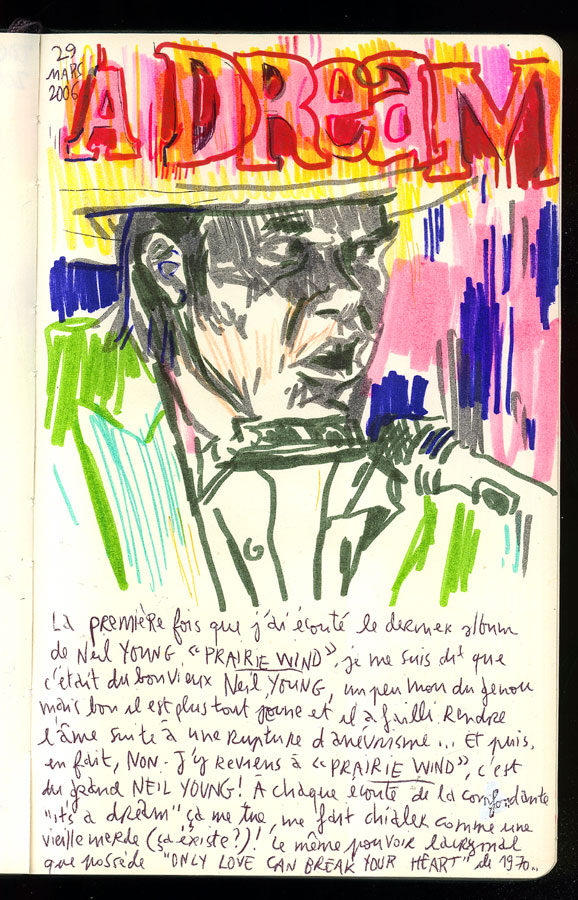 29
MARS
2006
A DReaM
La PREMIÈRE fois que j'ai écouté le dernier album
de Neil YOUNG "PRAIRIE WIND", je me suis dit que
c'était du bon vieux Neil YOUNG, un peu mou du genou
mais bon il est plus tout jeune et il a failli rendre
l'âme suite à une rupture d'anévrisme... Et puis,
en fait, NON. J'y reviens à "PRAIRIE WIND", c'est
du grand NEIL YOUNG! À chaque écoute de la confondante
"it's a dream" ça me tue, me fait chialer comme une
vieille merde (ça existe?)! Le même pouvoir lacrymal
que possède "ONLY LOVE CAN BREAK YOUR HEART" de 1970..